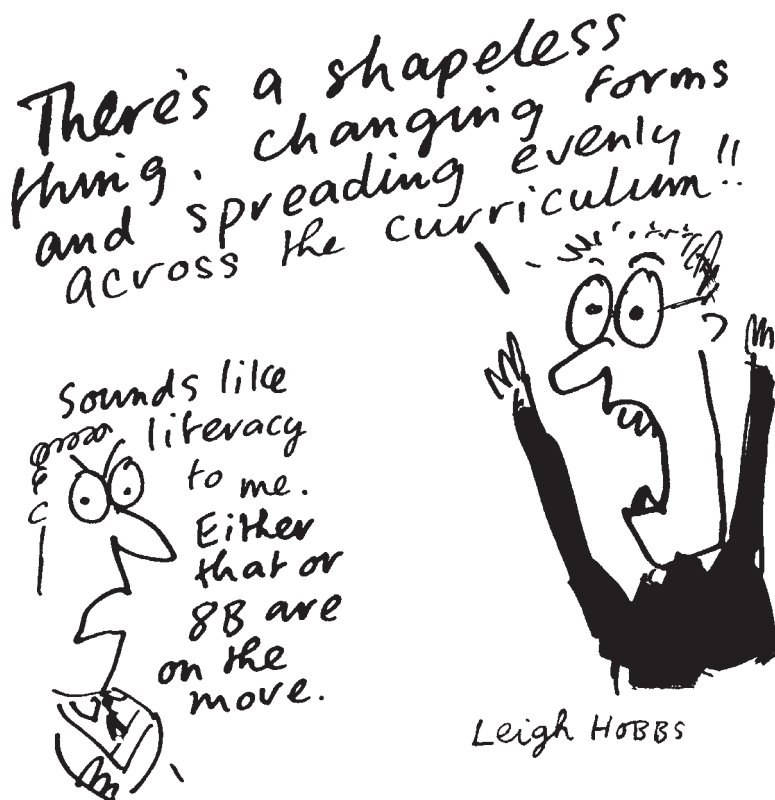 There's a shapeless
thing. changing forms
and spreading evenly
across the curriculum!!
Sounds like
literacy
to me.
Either
that or
8B are
on the
move.
Leigh HOBBS